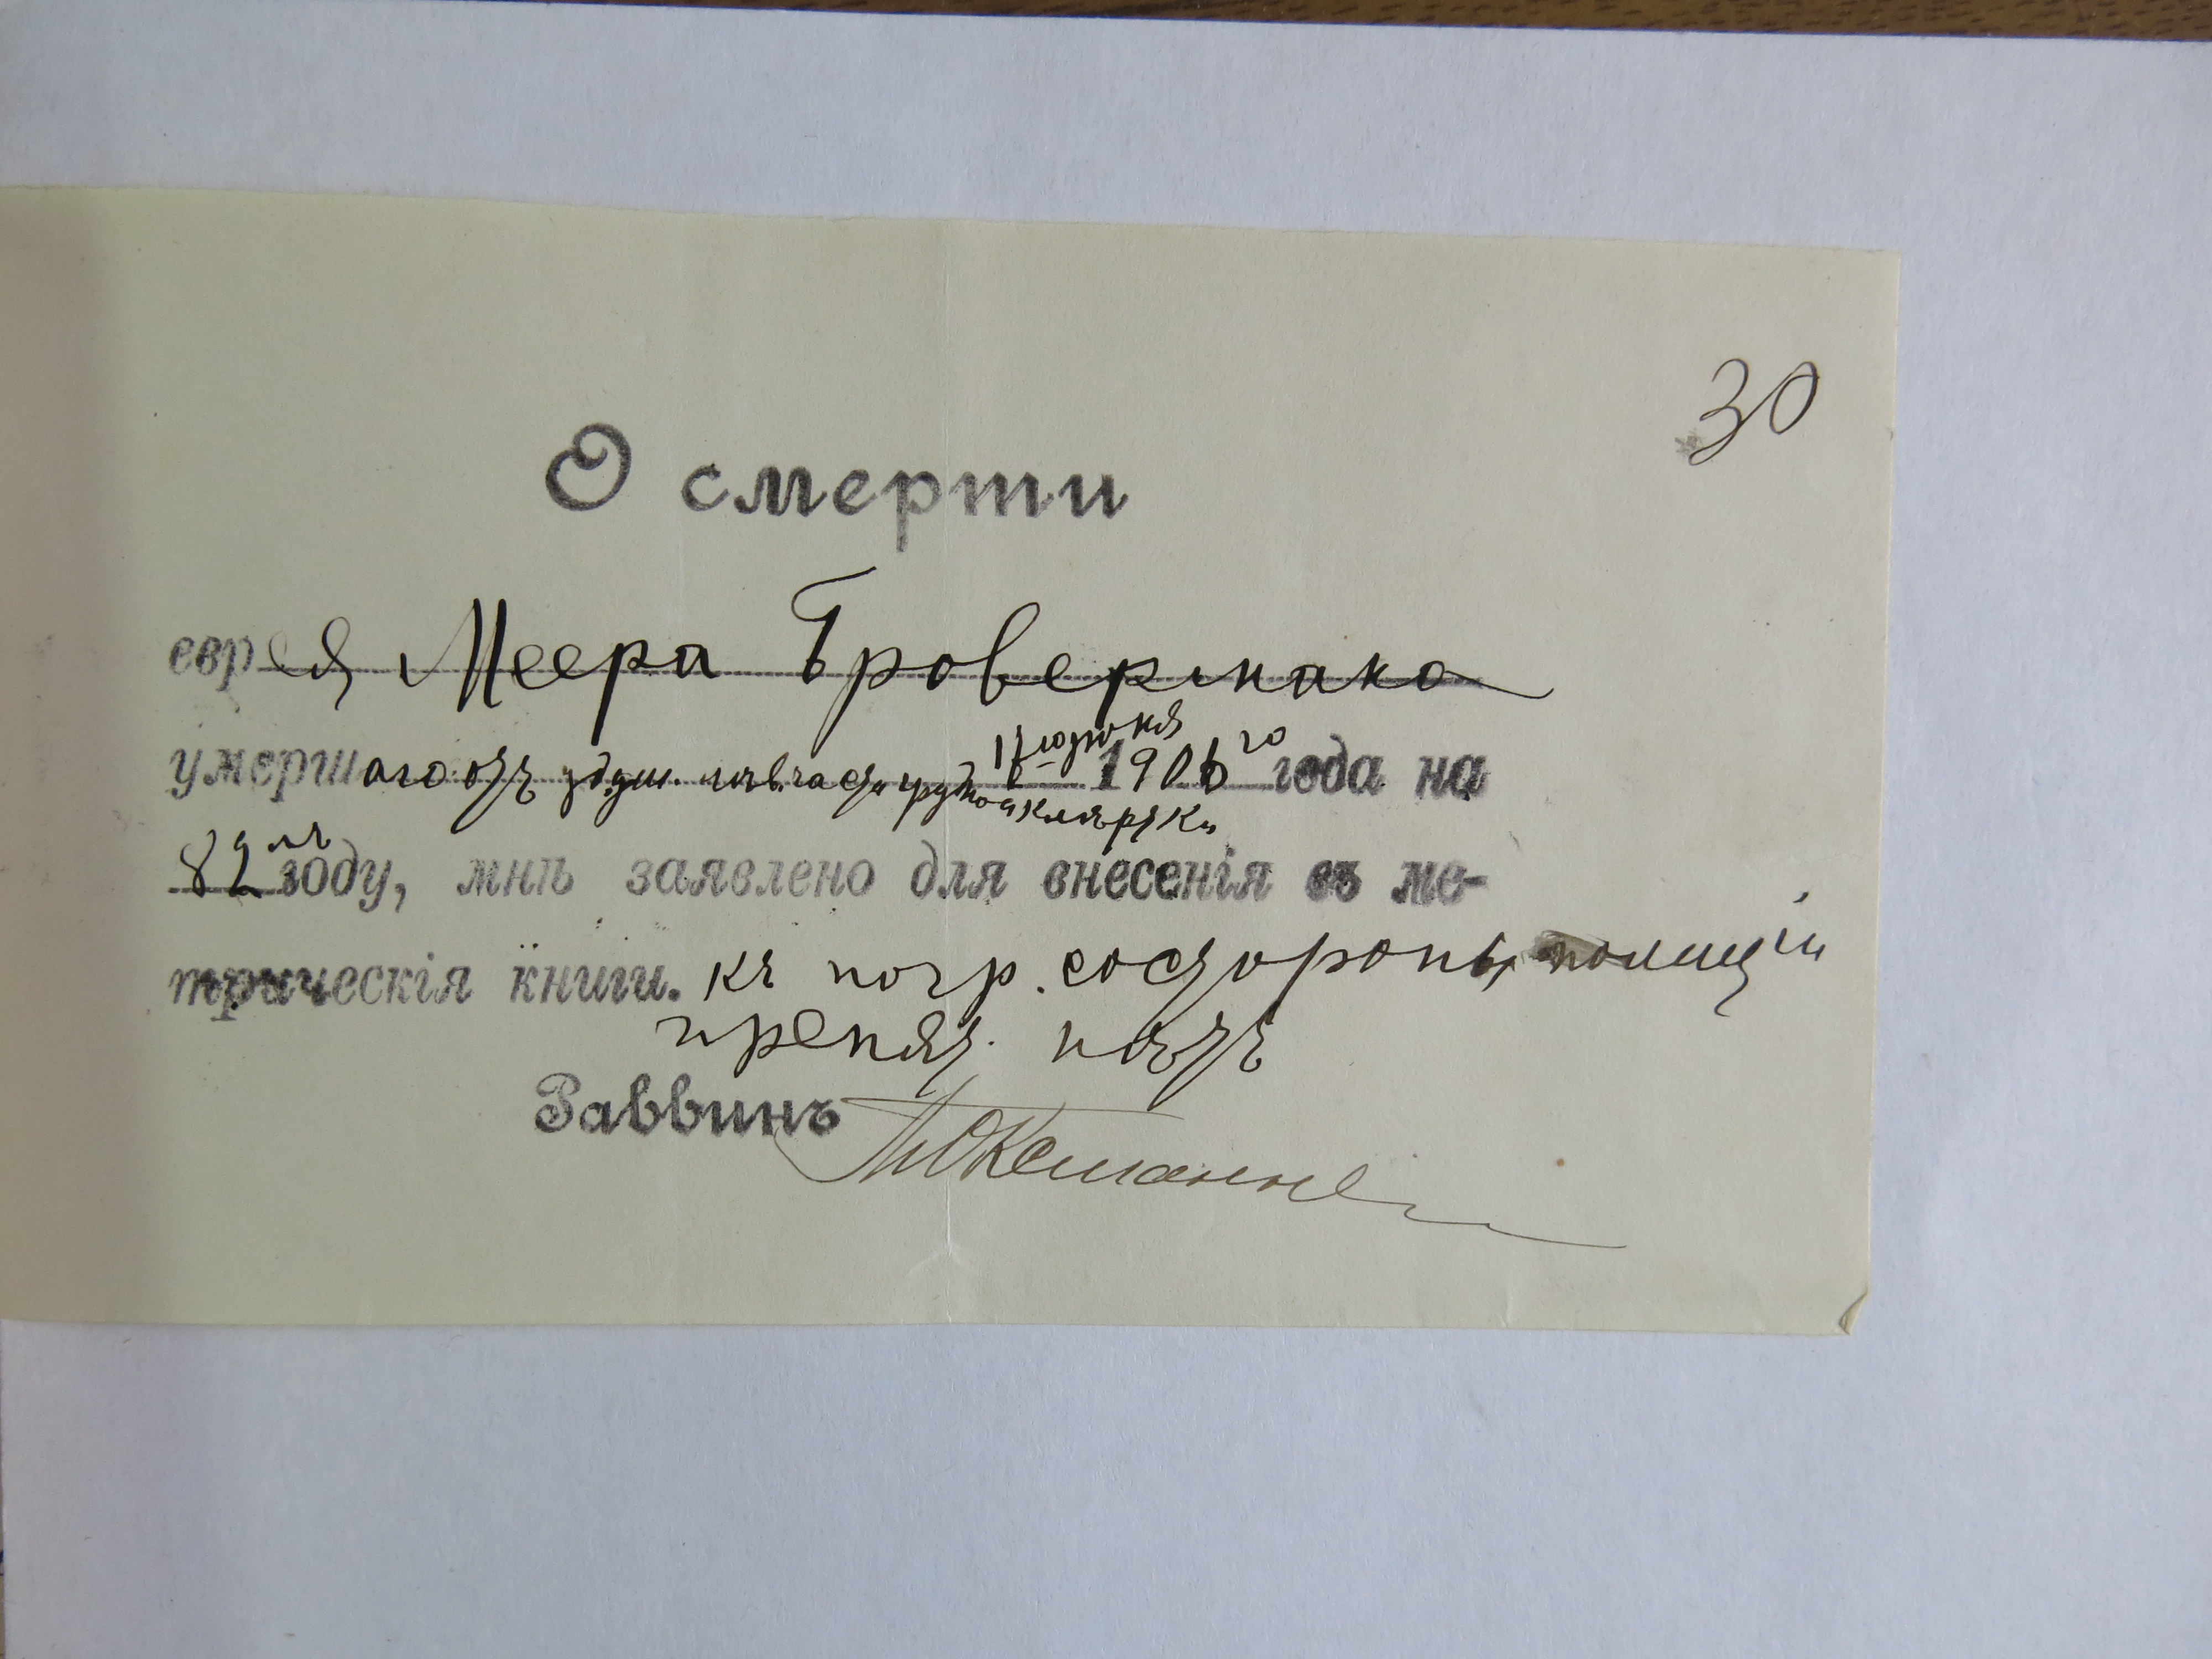 30
О смерти
еврея Меера Бровермана
умершаго отъ 1906 го года на
82 мъ году, мнѣ заявлено для внесенія въ ме-
трическія книги. къ погр. со стороны полиціи
препят. нѣтъ
Раввинъ